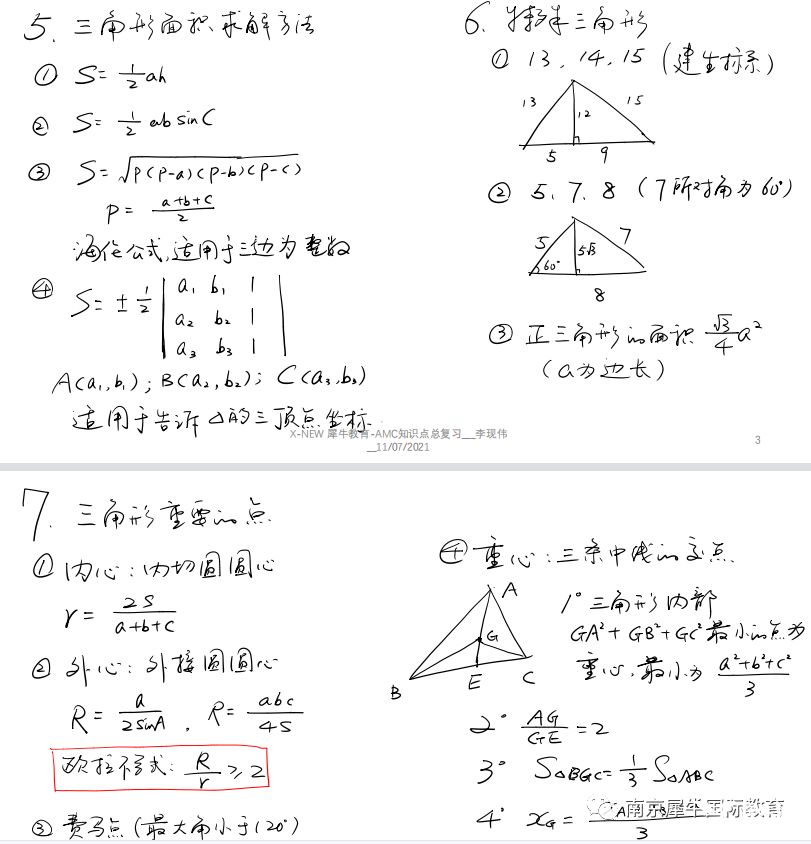 5. 三角形面积求解方法
① S= 1/2 ah
② S= 1/2 ab sinC
③ S=√P(P-a)(P-b)(P-c)
P= a+b+c/2
海伦公式,适用于三边为整数
④ S= ± 1/2 | a₁ b₁ 1 |
| a₂ b₂ 1 |
| a₃ b₃ 1 |
A(a₁,b₁); B(a₂,b₂); C(a₃,b₃)
适用于告诉△的三顶点坐标.
6. 特殊三角形
① 13, 14, 15 (建坐标系)
13 12 15
5 9
② 5, 7, 8 (7所对角为60°)
5 5√3 7
60°
8
③ 正三角形的面积 √3/4 a²
(a为边长)
X-NEW 犀牛教育-AMC知识点总复习__李现伟
__11/07/2021
3
7. 三角形重要的点
① 内心: 内切圆圆心
r= 2S/a+b+c
② 外心: 外接圆圆心
R= a/2sinA , R= abc/4S
欧拉不等式: R/r ≥2
③ 费马点(最大角小于120°)
④ 重心: 三条中线的交点.
A
G
B E C
1° 三角形内部
GA²+GB²+GC²最小的点为
重心,最小为 a²+b²+c²/3
2° AG/GE =2
3° S△BGC= 1/3 S△ABC
4° x_G= /3
南京犀牛国际教育